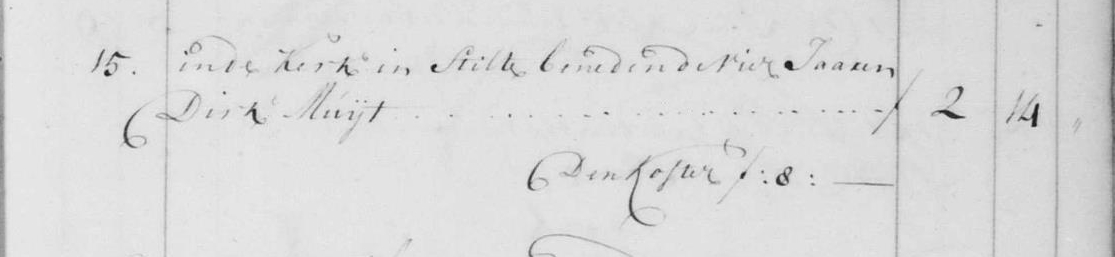 15. in de Kerk in Stilte beneden de Vier Jaaren
Dirk Muijt . . . . . . . . . . . . . . . f 2 14 "
Den Koster f : 8 : —